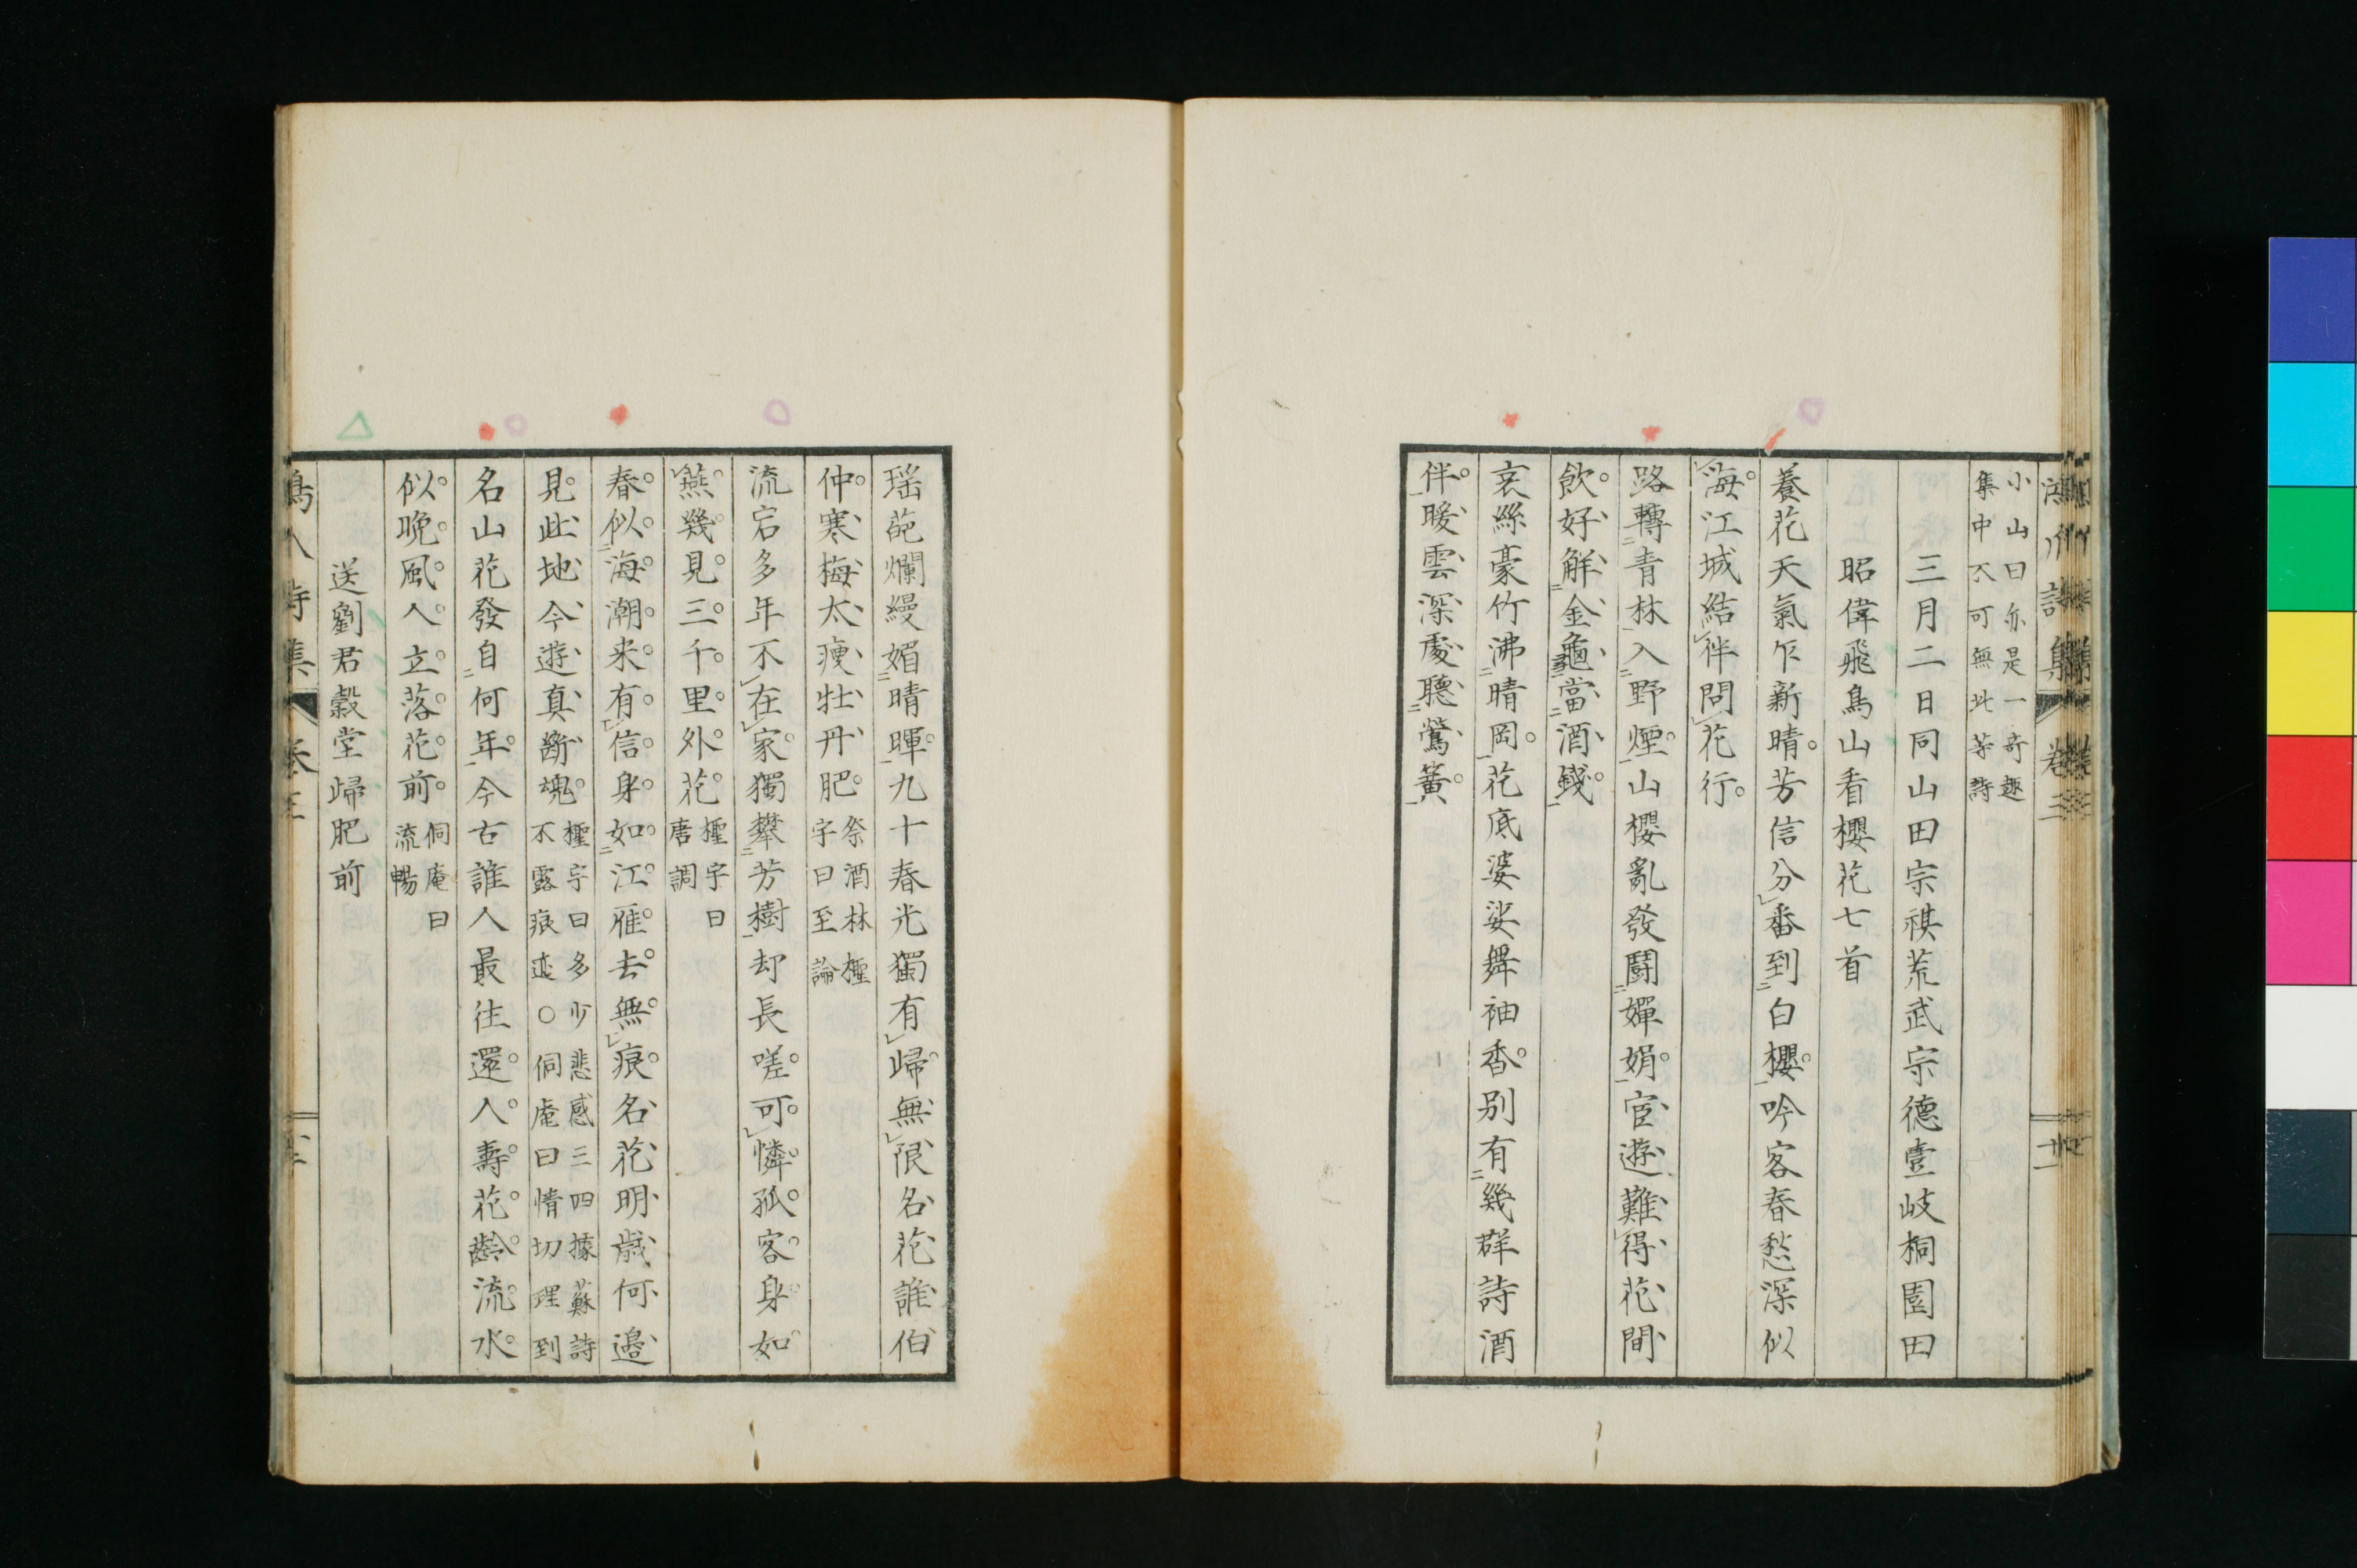 小山曰亦是一奇趣
集中不可無此等詩
三月二日同山田宗祺荒武宗德壹岐桐園田
昭偉飛鳥山看櫻花七首
養花天氣乍新晴。芳信分番到白櫻。吟客春愁深似
海。江城結伴問花行。
路轉青林入野煙。山櫻亂發鬪嬋娟。宦遊難得花間
飲。好解金龜當酒錢。
哀絲豪竹沸晴岡。花底婆娑舞袖香。別有幾群詩酒
伴。暖雲深處聽鶯簧。
瑶葩爛縵媚晴暉。九十春光獨有歸。無限名花誰伯
仲。寒梅太瘦牡丹肥。
祭酒林檉
宇曰至論
流宕多年不在家。獨攀芳樹却長嗟。可憐孤客身如
燕。幾見三千里外花。
檉宇曰
唐調
春似海潮来有信。身如江雁去無痕。名花明歳何邉
見。此地今遊真斷魂。
檉宇曰多少悲感三四據蘇詩
不露痕迹○侗庵曰情切理到
名山花發自何年。今古誰人最往還。人壽花齡流水
似。晩風人立落花前。
侗庵曰
流暢
送劉君穀堂歸肥前